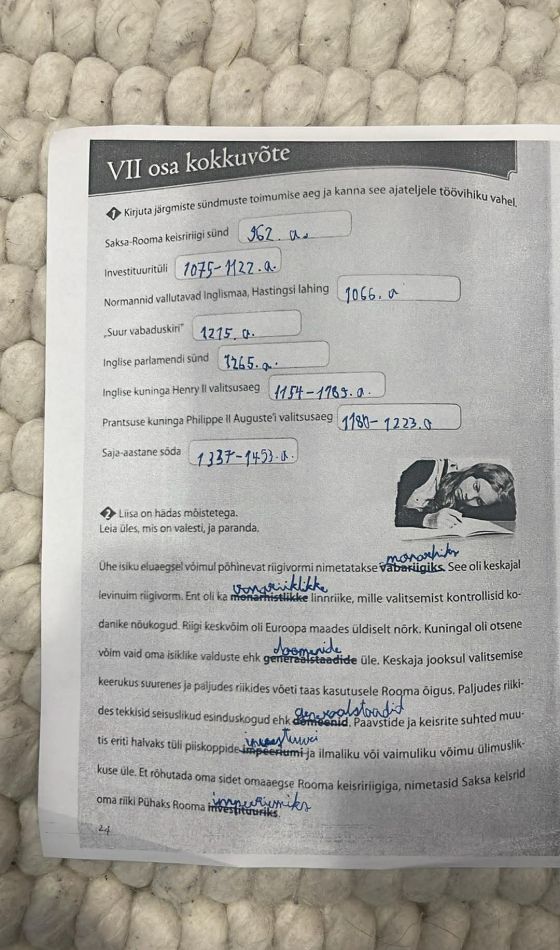 VII osa kokkuvõte
1 Kirjuta järgmiste sündmuste toimumise aeg ja kanna see ajateljele töövihiku vahel.
Saksa-Rooma keisririigi sünd 962. a.
Investituuritüli 1075-1122. a.
Normannid vallutavad Inglismaa, Hastingsi lahing 1066. a
„Suur vabaduskiri" 1215. a.
Inglise parlamendi sünd 1265. a.
Inglise kuninga Henry II valitsusaeg 1154-1189. a.
Prantsuse kuninga Philippe II Auguste'i valitsusaeg 1180-1223. a
Saja-aastane sõda 1337-1453. a.
2 Liisa on hädas mõistetega.
Leia üles, mis on valesti, ja paranda.
monarhiks
Ühe isiku eluaegsel võimul põhinevat riigivormi nimetatakse vabariigiks. See oli keskajal
vabariiklikke
levinuim riigivorm. Ent oli ka monarhistlikke linnriike, mille valitsemist kontrollisid ko-
danike nõukogud. Riigi keskvõim oli Euroopa maades üldiselt nõrk. Kuningal oli otsene
doomenide
võim vaid oma isiklike valduste ehk generaalstaadide üle. Keskaja jooksul valitsemise
keerukus suurenes ja paljudes riikides võeti taas kasutusele Rooma õigus. Paljudes riiki-
generaalstaadid
des tekkisid seisuslikud esinduskogud ehk domeenid. Paavstide ja keisrite suhted muu-
tis eriti halvaks tüli piiskoppide impeeriumi ja ilmaliku või vaimuliku võimu ülimuslik-
kuse üle. Et rõhutada oma sidet omaaegse Rooma keisririigiga, nimetasid Saksa keisrid
impeeriumiks
oma riiki Pühaks Rooma investituuriks.
24